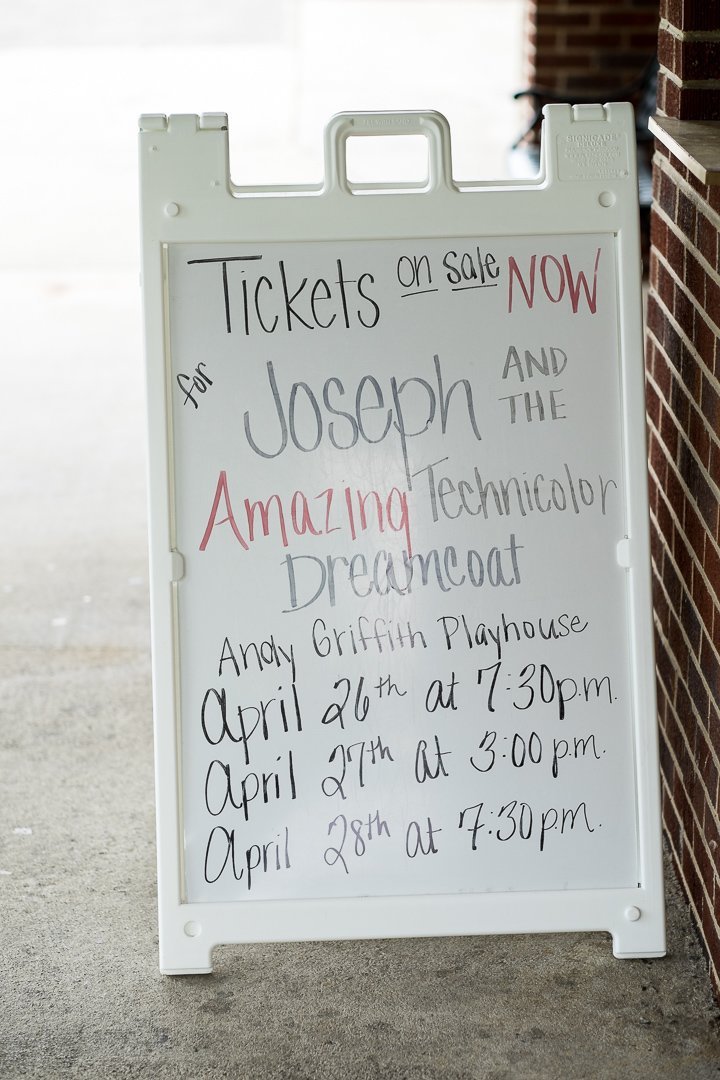 SIGNICADE
DELUXE
Tickets on sale NOW
for Joseph AND THE
Amazing Technicolor
Dreamcoat
Andy Griffith Playhouse
April 26th at 7:30p.m.
April 27th at 3:00 p.m.
April 28th at 7:30p.m.